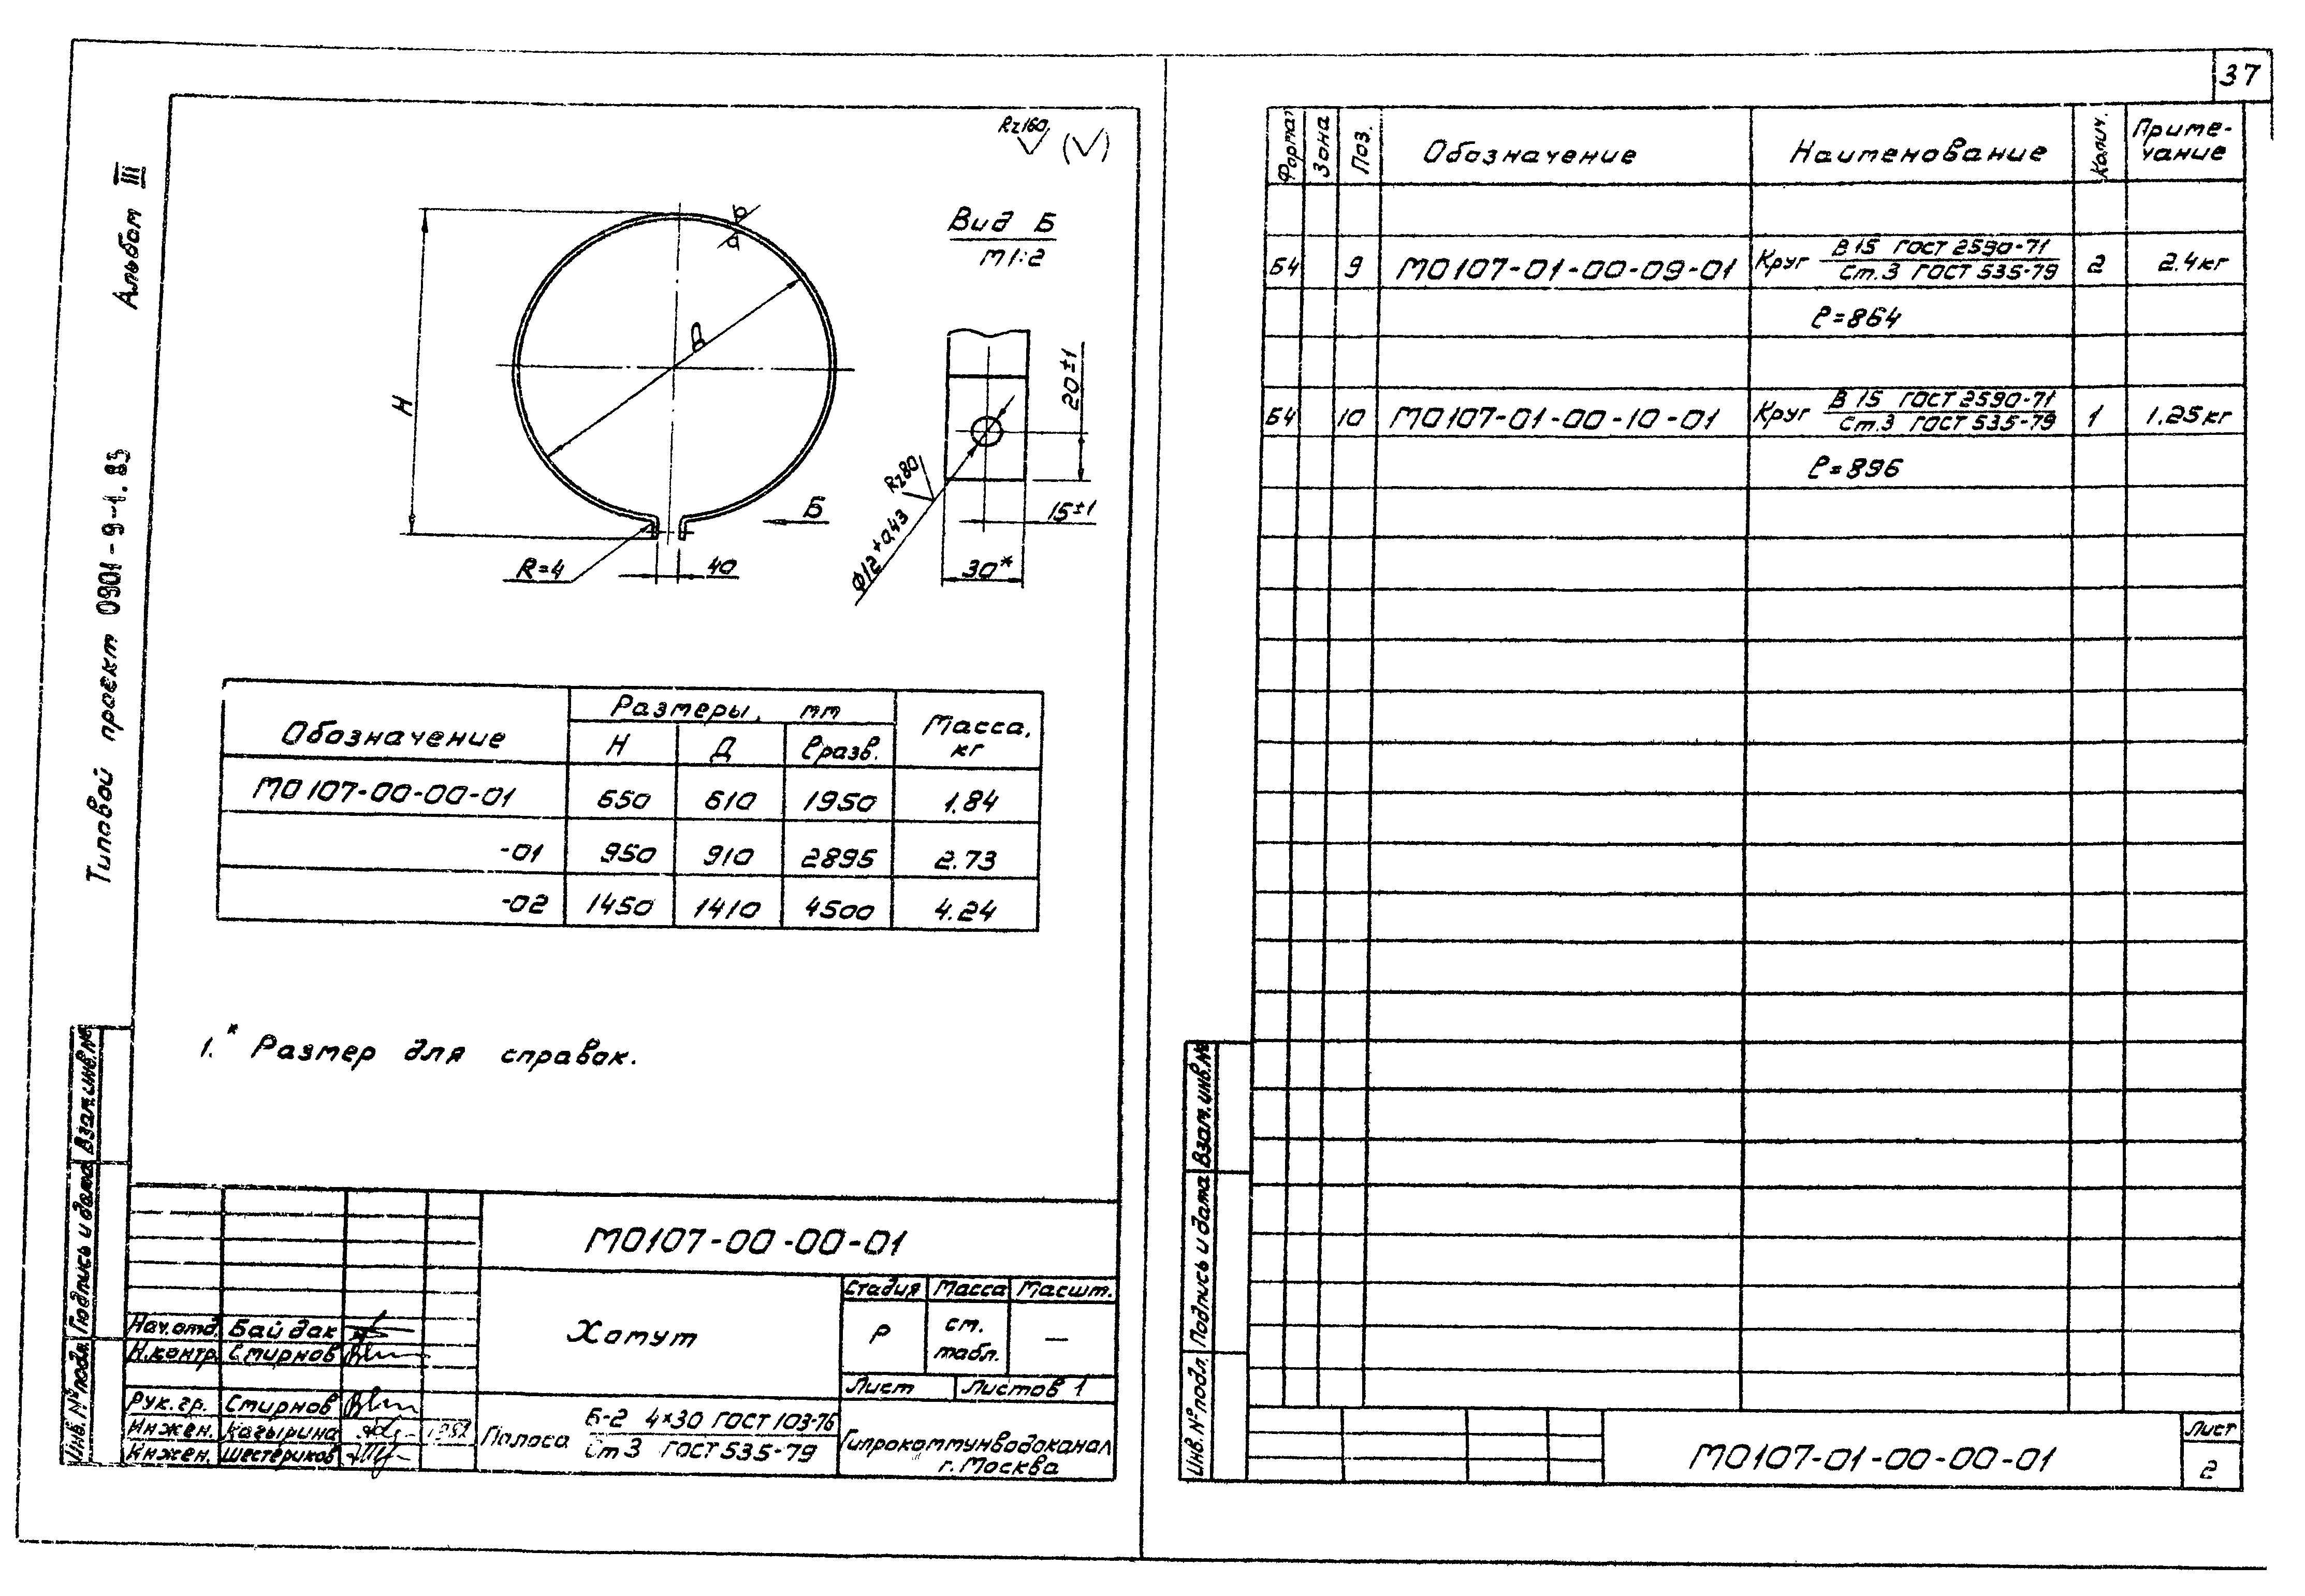 37
Альбом III
Типовой проект 0901-9-1.83
Rz160 (√)
Вид Б
М1:2
H
Д
Б
R=4
40
20±1
15±1
30*
Rz80
Ф12+0,43
Обозначение Размеры, мм Масса, кг
H Д ℓразв.
МО107-00-00-01 650 610 1950 1.84
-01 950 910 2895 2.73
-02 1450 1410 4500 4.24
1.* Размер для справок.
Инв.№подл. Подпись и дата Взам.инв.№
МО107-00-00-01
Хомут
Стадия Масса Масшт.
Р см. табл. —
Лист Листов 1
Нач.отд. Байдак
Н.контр. Смирнов
Рук.гр. Смирнов
Инжен.
Инжен. Шестериков
Полоса Б-2 4×30 ГОСТ 103-76
Ст 3 ГОСТ 535-79
Гипрокоммунводоканал
г. Москва
Формат Зона Поз. Обозначение Наименование Колич. Приме-
чание
Б4 9 МО107-01-00-09-01 Круг В 15 ГОСТ 2590-71 2 2.4кг
Ст.3 ГОСТ 535-79
ℓ=864
Б4 10 МО107-01-00-10-01 Круг В 15 ГОСТ 2590-71 1 1.25кг
Ст.3 ГОСТ 535-79
ℓ=896
Инв.№подл. Подпись и дата Взам.инв.№
МО107-01-00-00-01
Лист
2